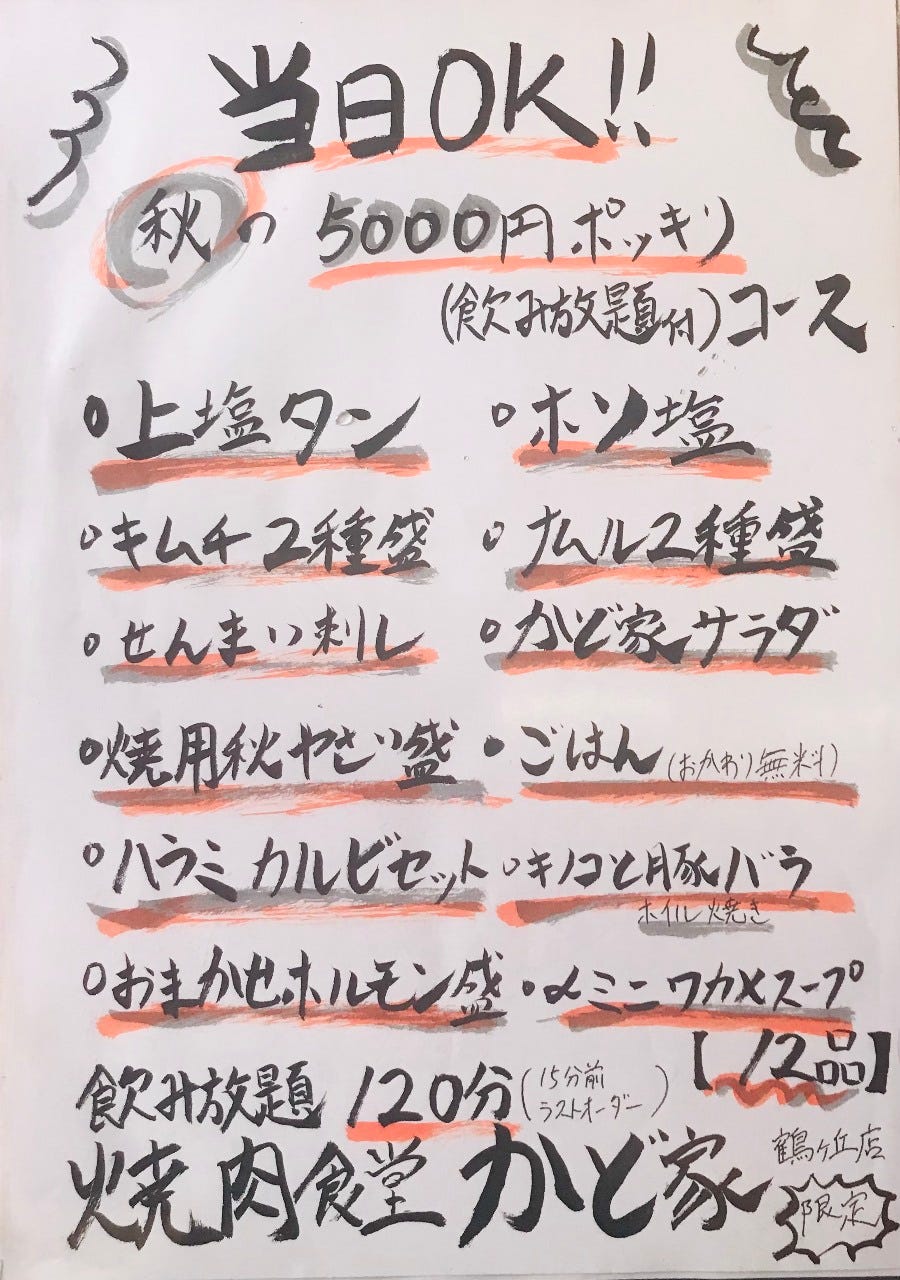 当日OK!!
秋の 5000円ポッキリ
(飲み放題付)コース
○上塩タン ○ホソ塩
○キムチ2種盛 ○ナムル2種盛
○せんまい刺し ○かど家サラダ
○焼用秋やさい盛 ・ごはん(おかわり無料)
○ハラミカルビセット ○キノコと豚バラ
ホイル焼き
○おまかせホルモン盛 ・〆ミニワカメスープ
【12品】
飲み放題 120分(15分前
ラストオーダー)
焼肉食堂 かど家 鶴ヶ丘店
限定